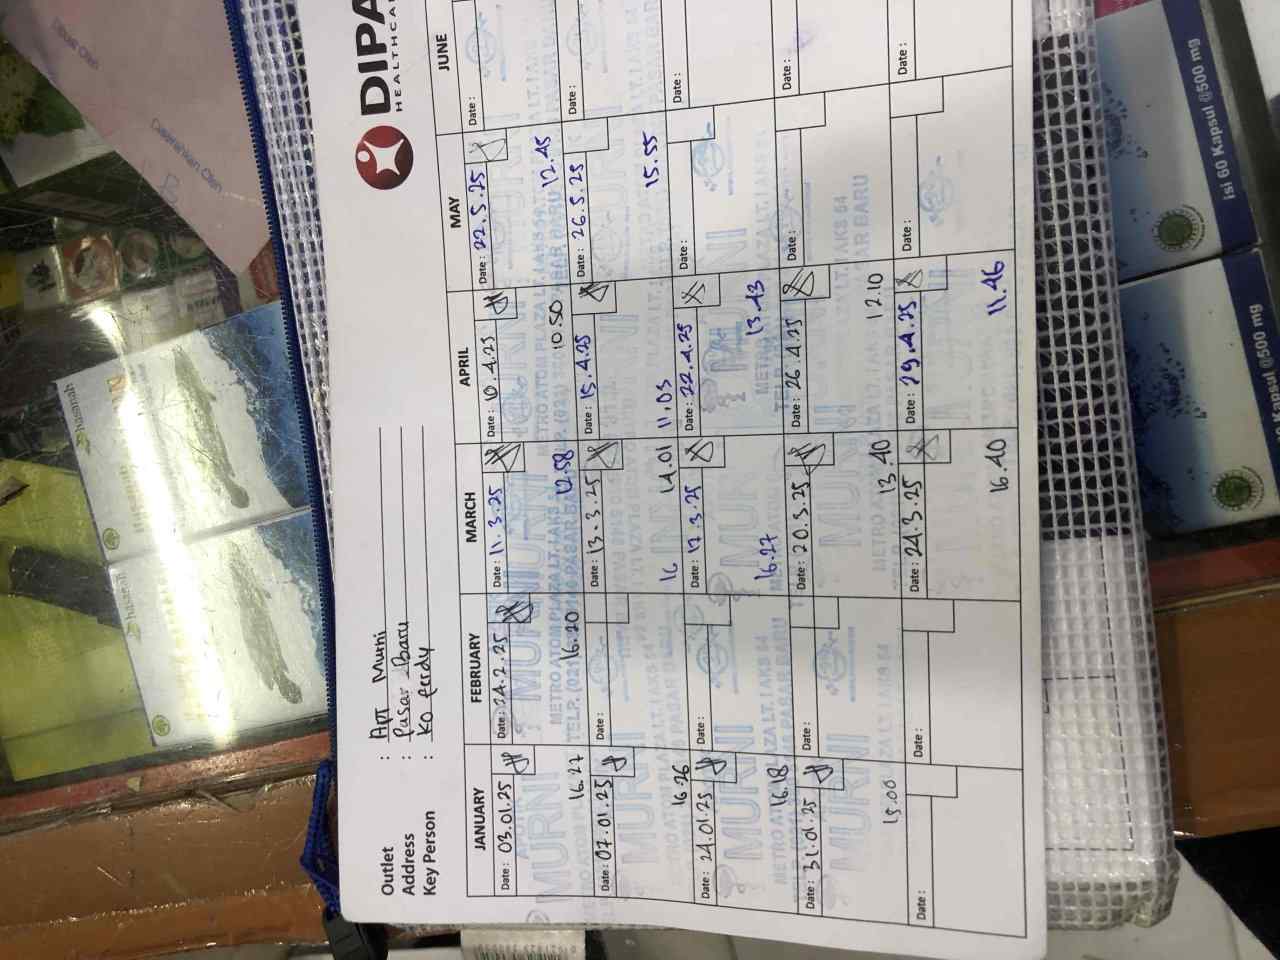 DIPA
HEALTHCAR
Outlet : Apt Murni
Address : Pasar Baru
Key Person : Ko Ferdy
JANUARY FEBRUARY MARCH APRIL MAY JUNE
Date : 03.01.25 Date : 24.2.25 Date : 11.3.25 Date : 10.4.25 Date : 22.5.25 Date :
16.27 16.20 12.58 10.50 12.45
Date : 07.01.25 Date : Date : 13.3.25 Date : 15.4.25 Date : 26.5.25 Date :
16.26 16 14.01 11.03 15.55
Date : 24.01.25 Date : Date : 17.3.25 Date : 22.4.25 Date : Date :
16.18 16.27 13.43
Date : 31.01.25 Date : Date : 20.3.25 Date : 26.4.25 Date : Date :
15.00 13.40 12.10
Date : Date : Date : 24.3.25 Date : 29.4.25 Date : Date :
16.40 11.46
MURNI
METRO ATOM PLAZA LT. I AKS 54
PASAR BARU
Diserahkan Oleh
hasanah
hasanah
Isi 60 Kapsul @500 mg
Kapsul @500 mg